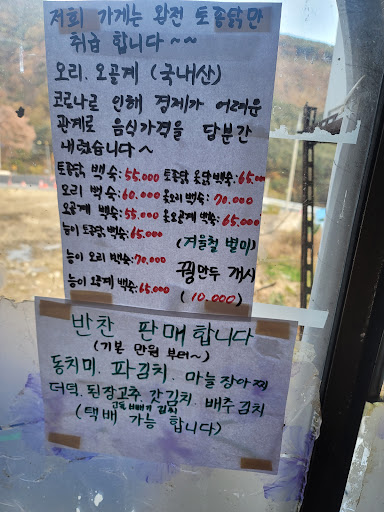 저희 가게는 완전 토종닭만
취급 합니다~~
오리. 오골계 (국내산)
코로나로 인해 경제가 어려운
관계로 음식가격을 당분간
내렸습니다~
토종닭 백숙:55.000 토종닭 옻닭백숙:65.000
오리 백숙:60.000 옻오리백숙:70.000
오골계 백숙:55.000 옻오골계백숙:65.000
능이 토종닭 백숙:65.000 (겨울철 별미)
능이 오리 백숙:70.000 꿩만두 개시
능이 오골계 백숙:65.000 (10.000)
반찬 판매합니다
(기본 만원 부터~)
동치미. 파김치. 마늘장아찌
더덕. 된장고추. 갓김치. 배추김치
고들빼기 김치
(택배 가능 합니다)